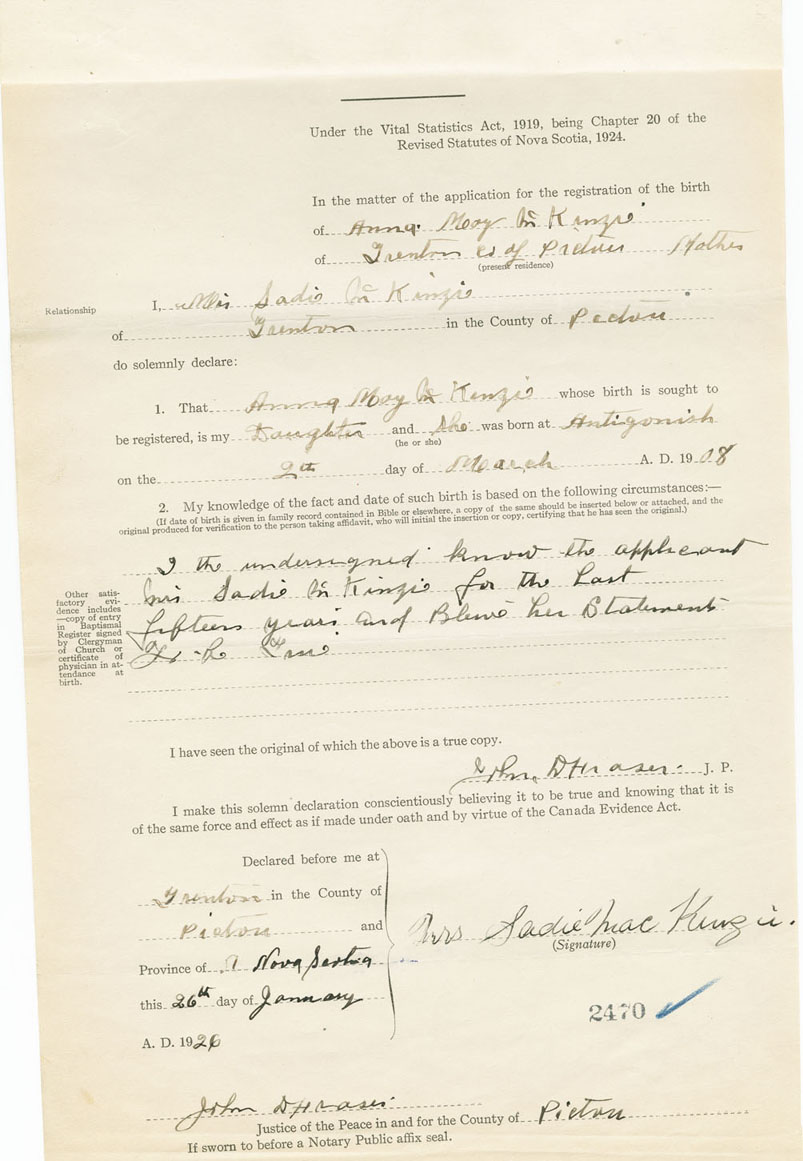 Under the Vital Statistics Act, 1919, being Chapter 20 of the
Revised Statutes of Nova Scotia, 1924.
In the matter of the application for the registration of the birth
of Anna May Mc Kinzie
of Trenton Co of Pictou Mother
(present residence)
Relationship
I, Mrs Sadie Mc Kinzie
of Trenton in the County of Pictou
do solemnly declare:
1. That Anna May Mc Kinzie whose birth is sought to
be registered, is my Daughter and she was born at Antigonish
(he or she)
on the 9th day of March A. D. 1908
2. My knowledge of the fact and date of such birth is based on the following circumstances:—
(If date of birth is given in family record contained in Bible or elsewhere, a copy of the same should be inserted below or attached, and the
original produced for verification to the person taking affidavit, who will initial the insertion or copy, certifying that he has seen the original.)
I the undersigned know the applicant
Mrs Sadie Mc Kinzie for the Last
fifteen years and Bleive her Statement
To be True
Other satis-
factory evi-
dence includes
—copy of entry
in Baptismal
Register signed
by Clergyman
of Church or
certificate of
physician in at-
tendance at
birth.
I have seen the original of which the above is a true copy.
John D Fraser J. P.
I make this solemn declaration conscientiously believing it to be true and knowing that it is
of the same force and effect as if made under oath and by virtue of the Canada Evidence Act.
Declared before me at
Trenton in the County of
Pictou and
Province of Nova Scotia
this 26th day of January
A. D. 1926
Mrs Sadie Mac Kenzie.
(Signature)
2470
John D Fraser
Justice of the Peace in and for the County of Pictou
If sworn to before a Notary Public affix seal.